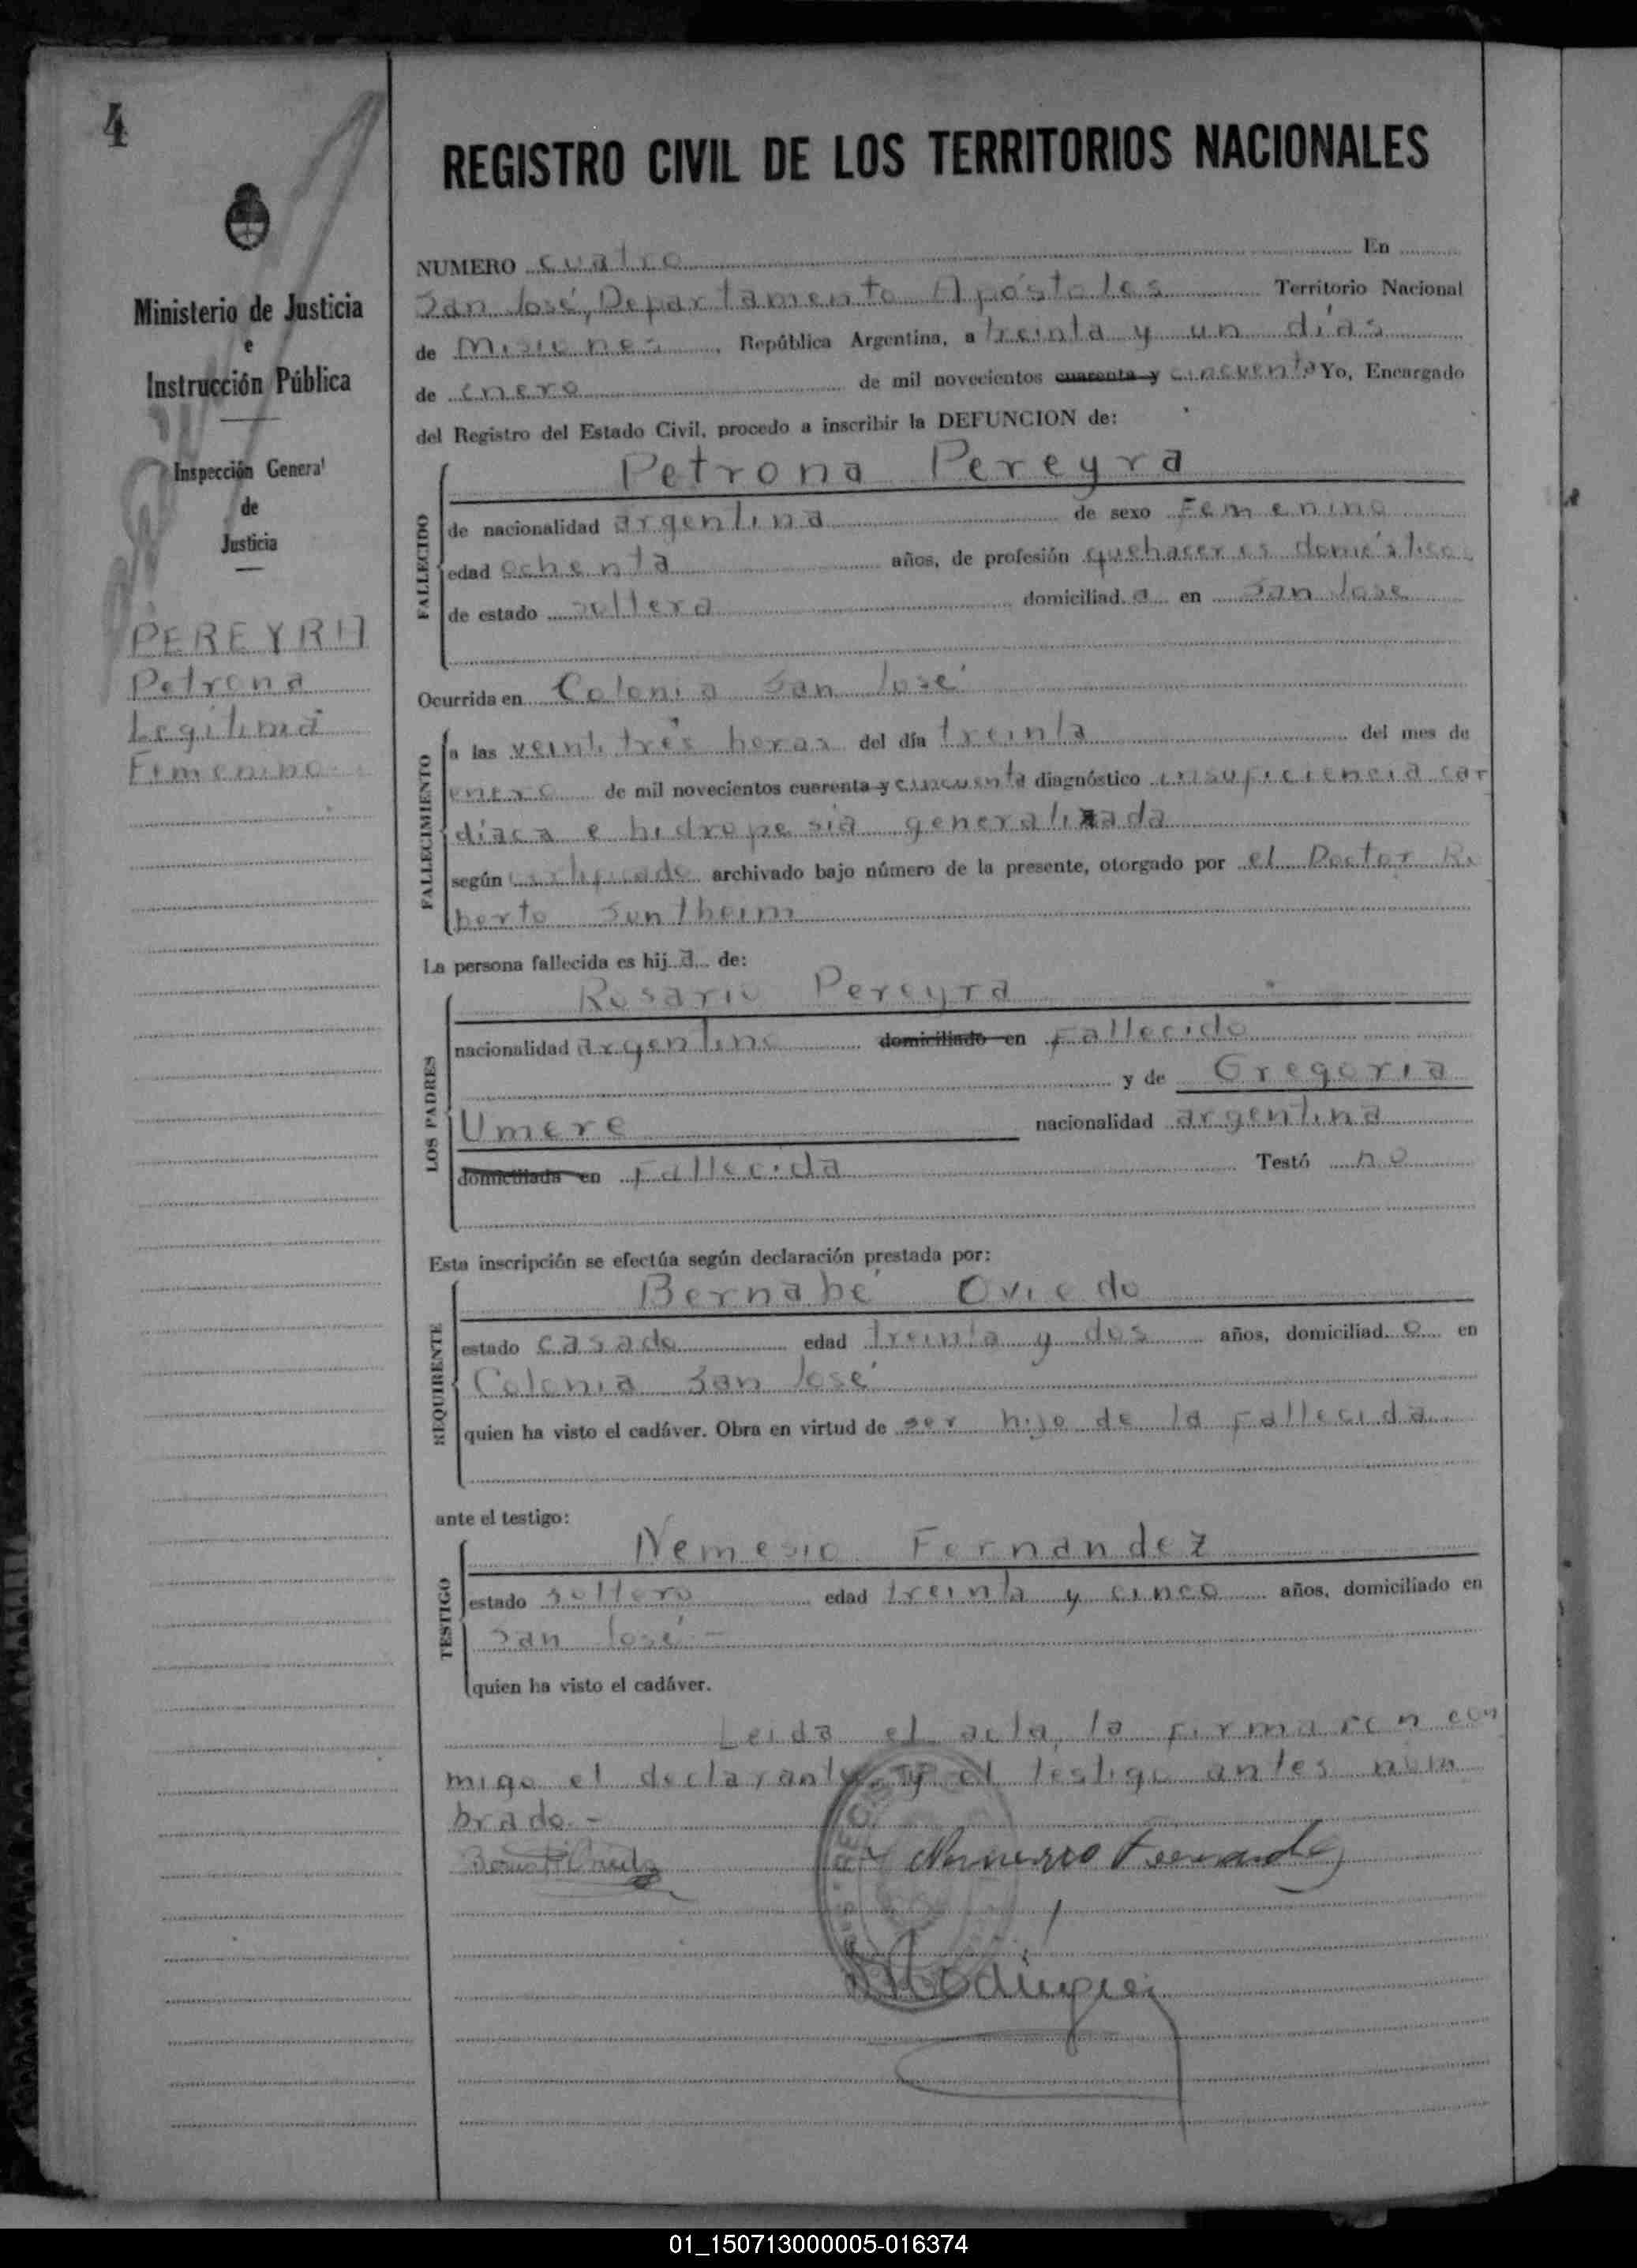 4
Ministerio de Justicia
e
Instrucción Pública
Inspección General
de
Justicia
PEREYRA
Petrona
Legítima
Femenino
REGISTRO CIVIL DE LOS TERRITORIOS NACIONALES
NUMERO cuatro En
San José, Departamento Apóstoles Territorio Nacional
de Misiones, República Argentina, a treinta y un días
de enero de mil novecientos cuarenta y cincuenta Yo, Encargado
del Registro del Estado Civil, procedo a inscribir la DEFUNCION de:
Petrona Pereyra
FALLECIDO
de nacionalidad argentina de sexo Femenino
edad ochenta años, de profesión quehaceres domésticos
de estado soltera domiciliad a en San José
Ocurrida en Colonia San José
FALLECIMIENTO
a las veinti trés horas del día treinta del mes de
enero de mil novecientos cuarenta y cincuenta diagnóstico insuficiencia car
díaca e hidropesia generalizada
según certificado archivado bajo número de la presente, otorgado por el Doctor Ro
berto Suntheim
La persona fallecida es hij a de:
LOS PADRES
Rosario Pereyra
nacionalidad argentino domiciliado en Fallecido
y de Gregoria
Umere nacionalidad argentina
domiciliada en Fallecida Testó no
Esta inscripción se efectúa según declaración prestada por:
REQUIRENTE
Bernabé Oviedo
estado casado edad treinta y dos años, domiciliad o en
Colonia San José
quien ha visto el cadáver. Obra en virtud de ser hijo de la fallecida
ante el testigo:
TESTIGO
Nemesio Fernandez
estado soltero edad treinta y cinco años, domiciliado en
San José -
quien ha visto el cadáver.
Leida el acta, la firmaron con
migo el declarante y el testigo antes nom
brado.-
Nemesio Fernandez
01_150713000005-016374